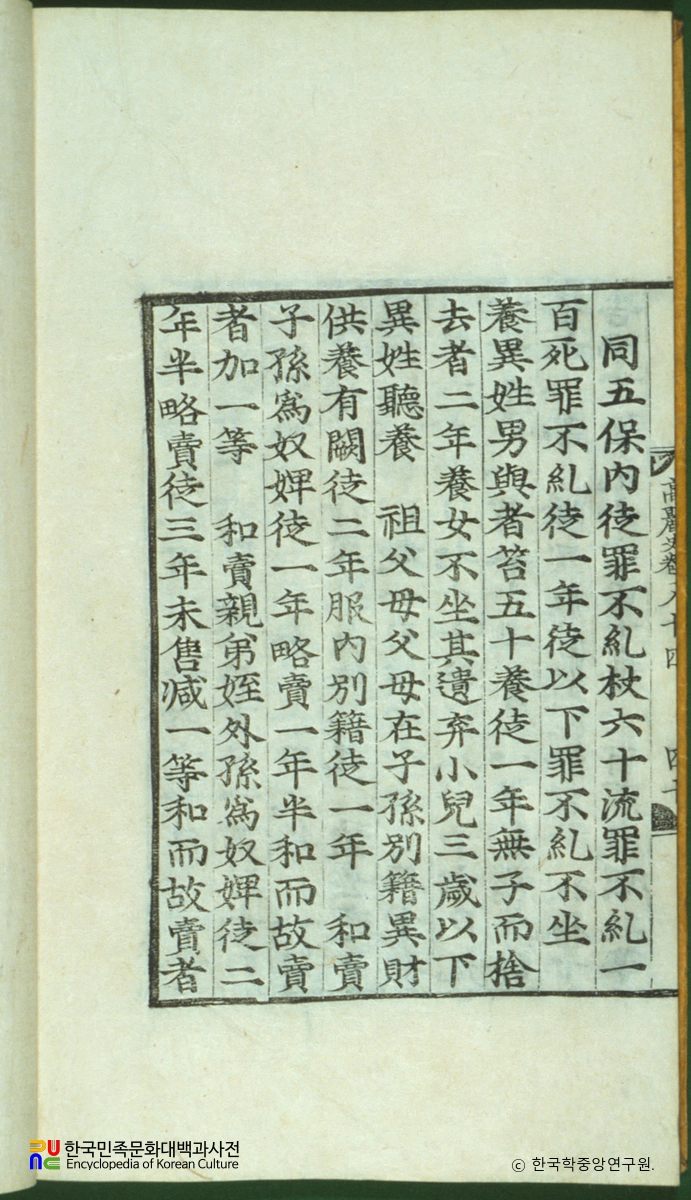 高麗史卷八十四
同五保內徒罪不糺杖六十流罪不糺一
百死罪不糺徒一年徒以下罪不糺不坐
養異姓男與者笞五十養徒一年無子而捨
去者二年養女不坐其遺弃小兒三歲以下
異姓聽養 祖父母父母在子孫別籍異財
供養有闕徒二年服內別籍徒一年 和賣
子孫爲奴婢徒一年略賣一年半和而故賣
者加一等 和賣親弟姪外孫爲奴婢徒二
年半略賣徒三年未售減一等和而故賣者
한국민족문화대백과사전
Encyclopedia of Korean Culture
© 한국학중앙연구원.